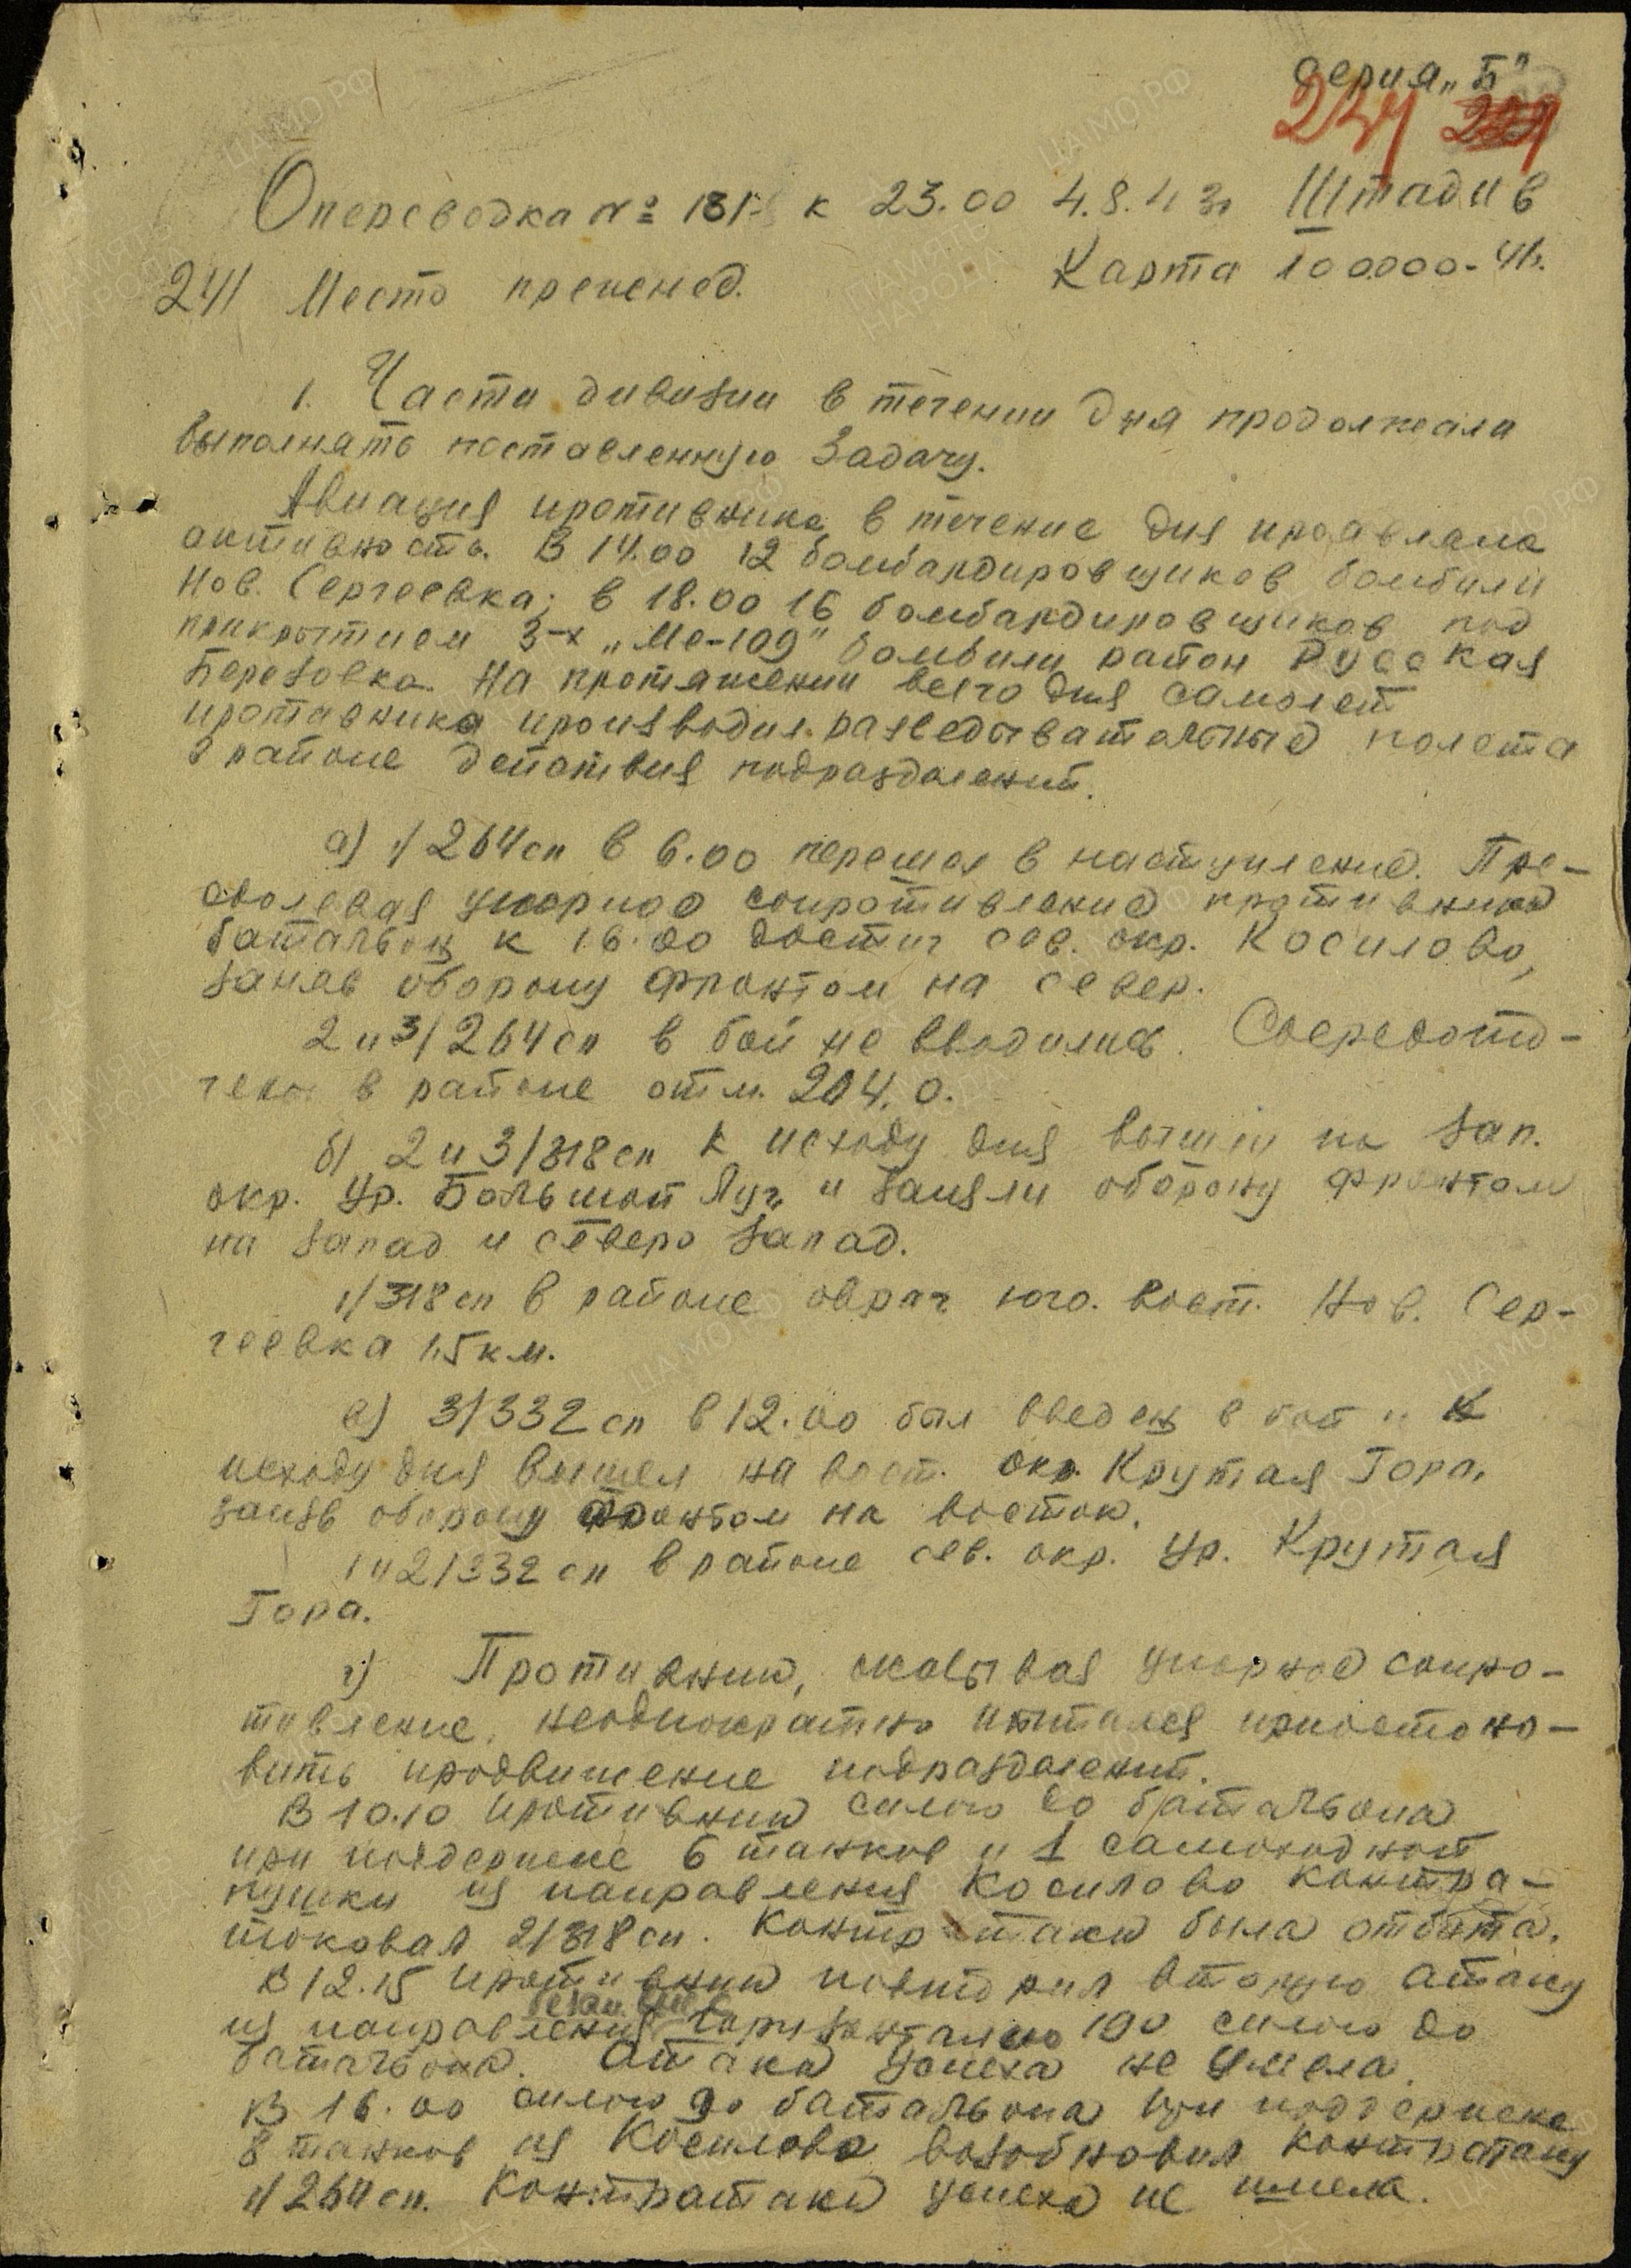 серия „Б“
234
Оперсводка № 131 к 23.00 4.8.43г Штадив
241 Место прежнее.
Карта 100.000-41г.
1. Части дивизии в течении дня продолжали
выполнять поставленную задачу.
Авиация противника в течение дня проявляла
активность. В 14.00 12 бомбардировщиков бомбили
Нов. Сергеевка; в 18.00 16 бомбардировщиков под
прикрытием 3-х „Ме-109“ бомбили район Русская
Березовка. На протяжении всего дня самолет
противника производил разведывательные полеты
в районе действия подразделений.
а) 1/264 сп в 6.00 перешел в наступление. Пре-
одолевая упорное сопротивление противника
батальон к 16.00 достиг сев. окр. Косилово,
заняв оборону фронтом на север.
2 и 3/264 сп в бой не вводились. Сосредото-
чены в районе отм. 204.0.
б) 2 и 3/318 сп к исходу дня вышли на зап.
окр. ур. Большой Луг и заняли оборону фронтом
на запад и северо запад.
1/318 сп в районе овраг юго. вост. Нов. Сер-
геевка 1,5 км.
в) 3/332 сп в 12.00 был введен в бой и к
исходу дня вышел на вост. окр. Крутая Гора,
заняв оборону фронтом на восток.
1 и 2/332 сп в районе сев. окр. ур. Крутая
Гора.
г) Противник, оказывая упорное сопро-
тивление, неоднократно пытался приостано-
вить продвижение подразделений.
В 10.10 противник силою до батальона
при поддержке 6 танков и 1 самоходной
пушки из направления Косилово контра-
таковал 2/318 сп. Контратака была отбита.
В 12.15 противник повторил вторую атаку
из направления горизонталью 190 силою до
батальона. Атака успеха не имела.
В 16.00 силою до батальона при поддержке
8 танков из Косилово возобновил контратаку
1/264 сп. Контратака успеха не имела.